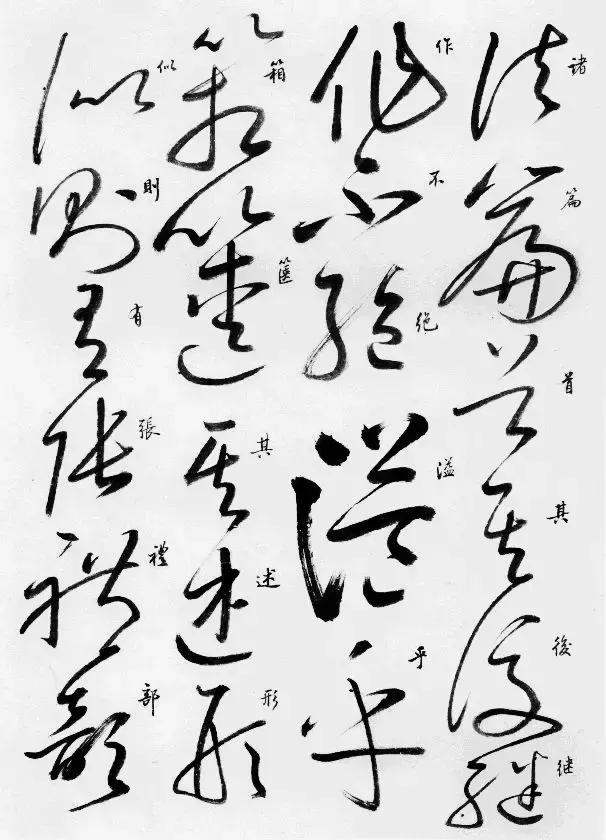 諸篇首其後继
作不绝溢乎
箱篋其述形
似則有張禮部